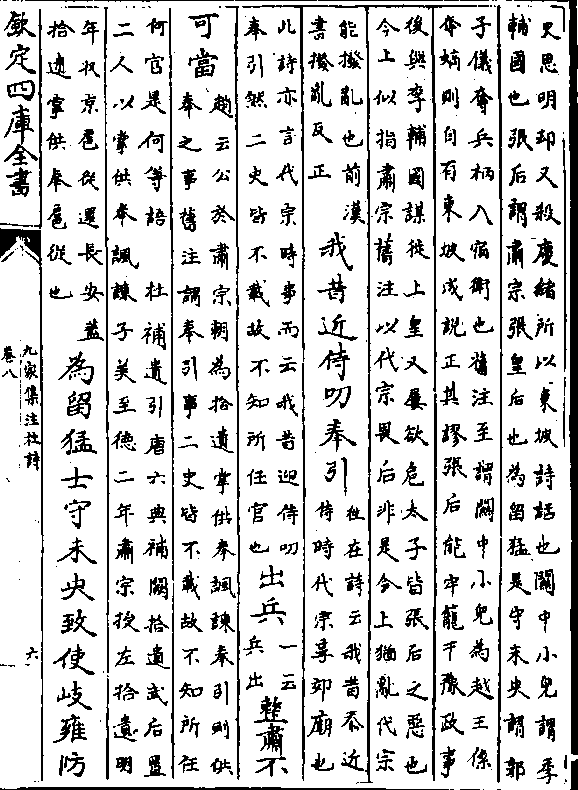 史思明却又殺慶緒所以東坡詩話也關中小兒謂李
輔國也張后謂肅宗張皇后也為留猛是守未央謂郭
子儀奪兵柄入宿衛也舊注至謂關中小兒為越王係
奔蜹則自有東坡成說正其謬張后能牢籠干豫政事
後與李輔國謀徙上皇又屢欲危太子皆張后之惡也
今上似指肅宗舊注以代宗畏后非是今上猶亂代宗
能撥亂也前漢
書撥亂反正
我昔近侍叨奉引
杜在詩云我昔忝近
侍時代宗享郊廟也
此詩亦言代宗時事而云我昔迎侍叨
奉引然二史皆不載故不知所任官也
出兵
一云
兵出
整肅不
可當
趙云公於肅宗朝為拾遺掌供奉諷諫奉引則供
奉之事舊注謂奉引事二史皆不載故不知所任
何官是何等語 杜補遺引唐六典補闕拾遺武后置
二人以掌供奉諷諫子美至德二年肅宗授左拾遺明
年收京扈從還長安蓋
拾遺掌供奉扈從也
為留猛士守未央致使岐雍防
欽定四庫全書
九家集注杜詩
卷八
六